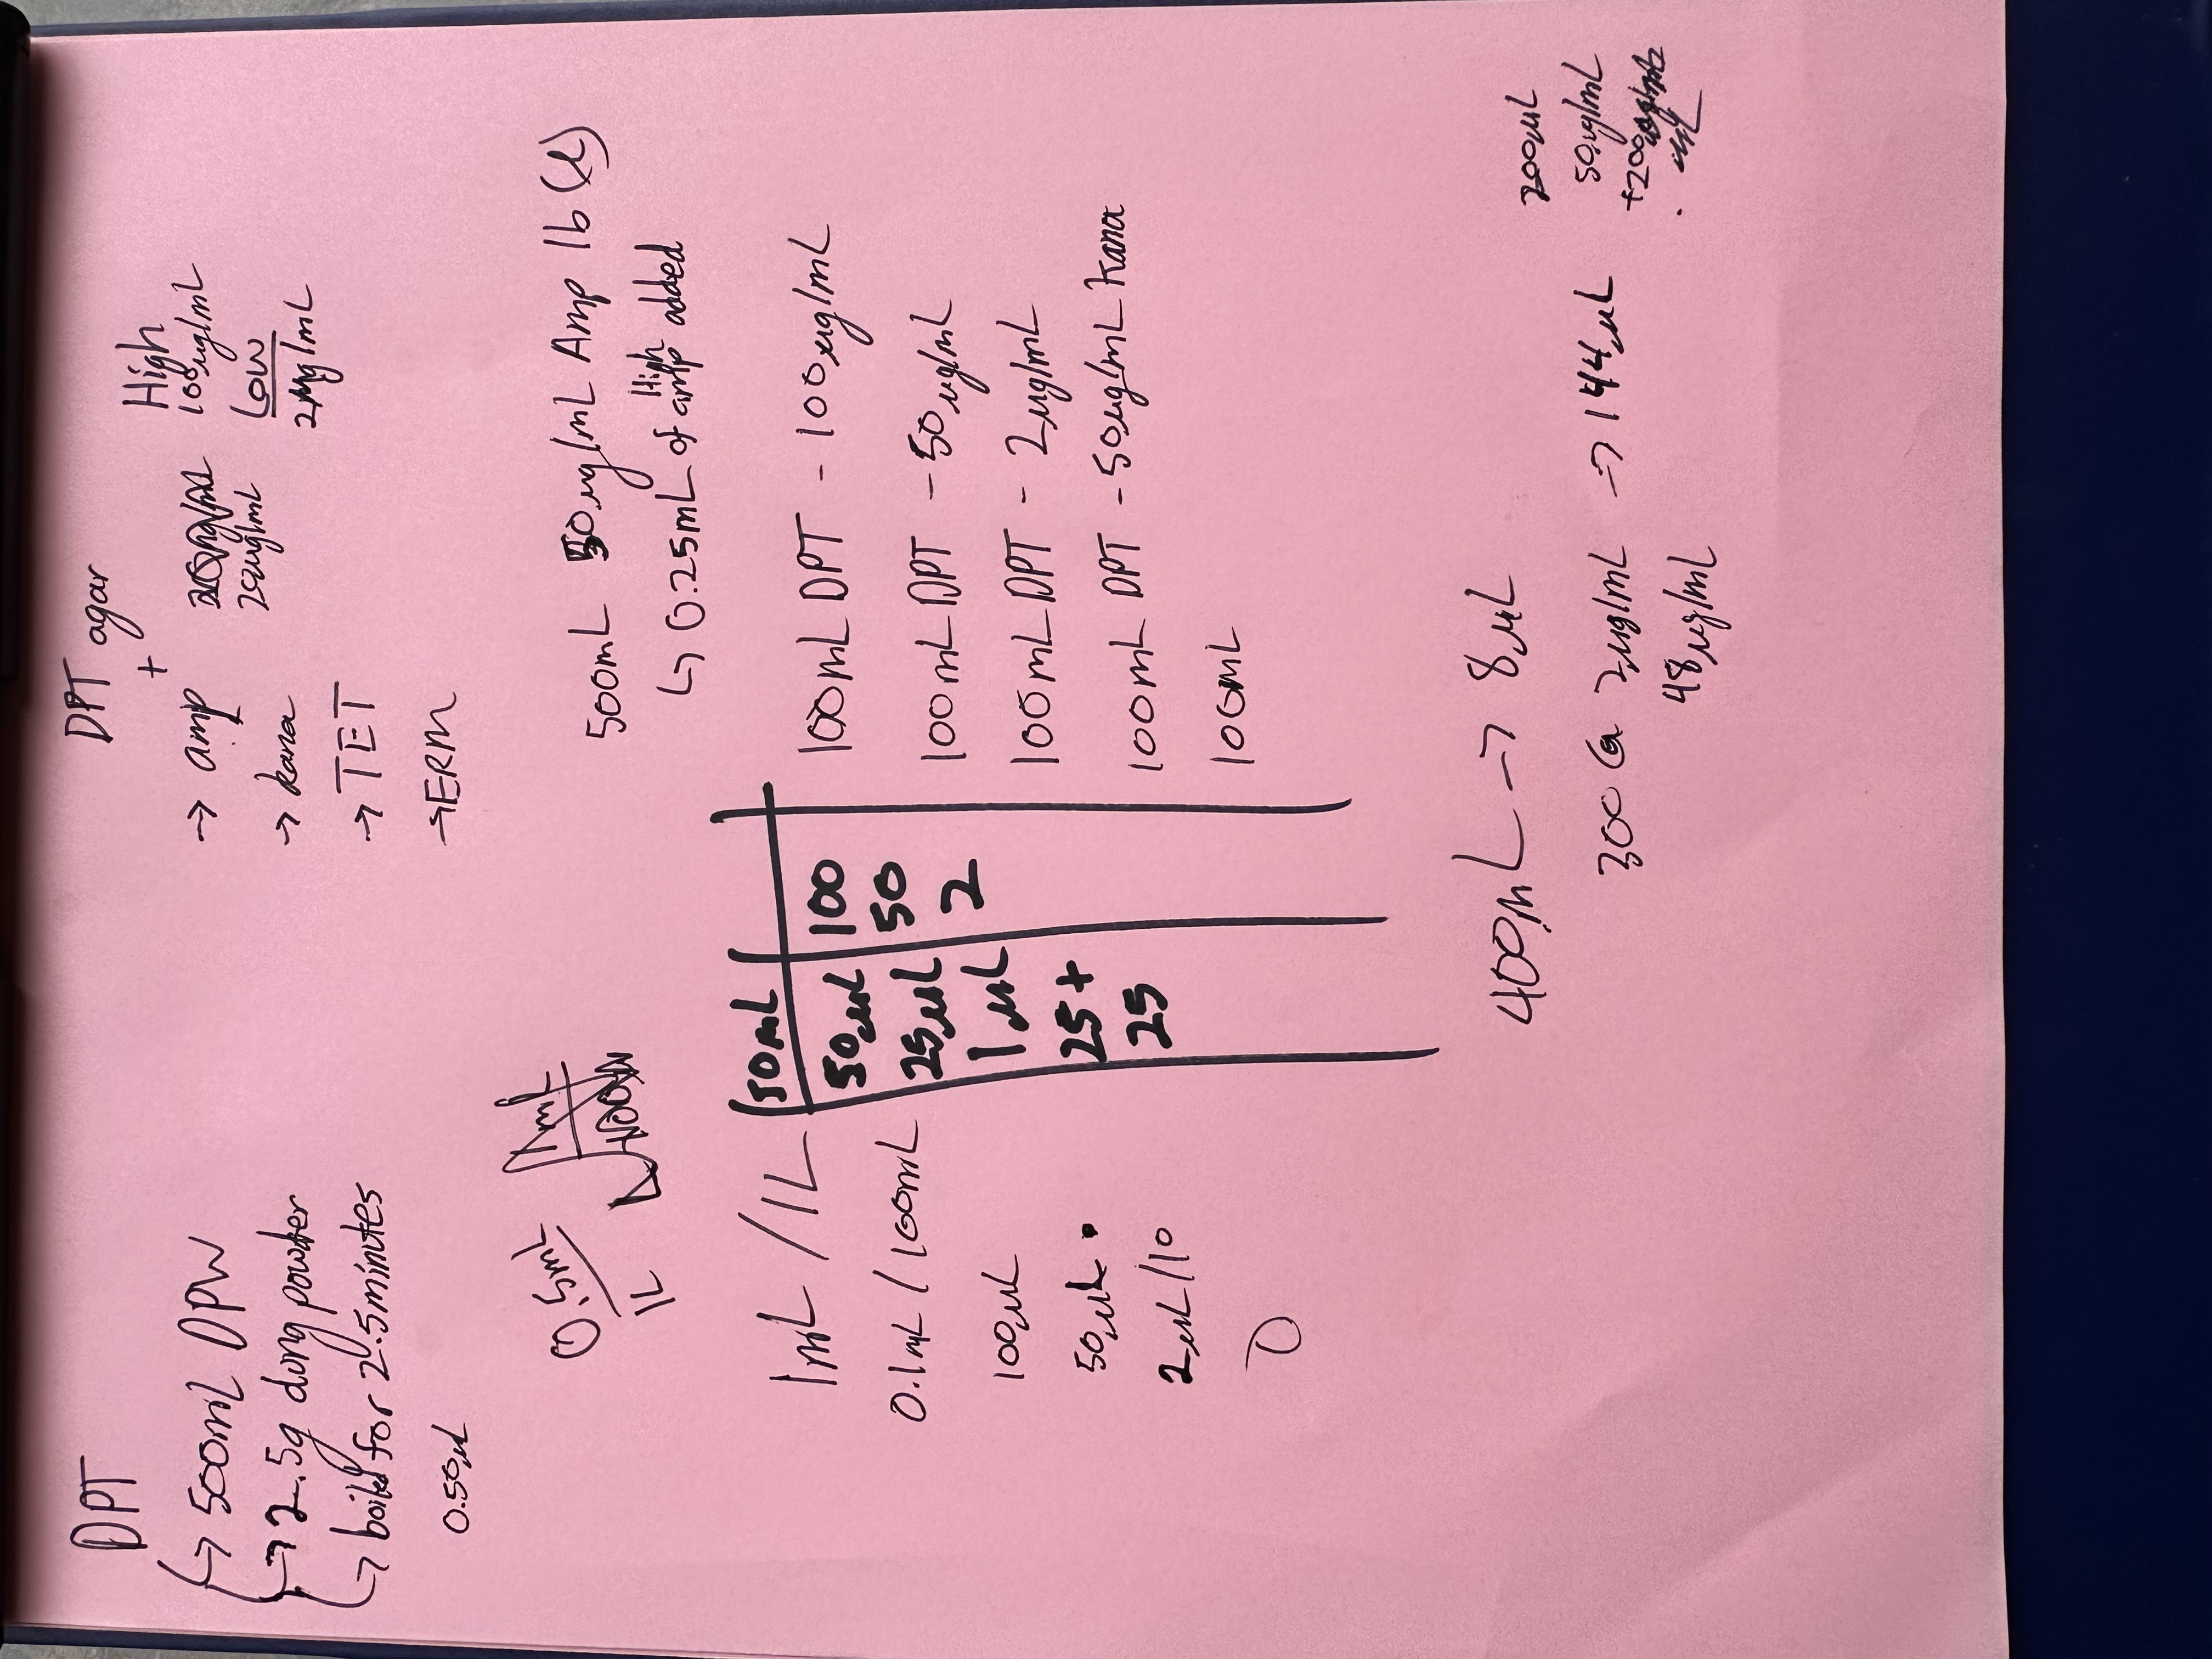 DPT
→ 500mL DPW
→ 2.5g dung powder
→ boiled for 2.5minutes
0.50µL
DPT agar
+
→ amp
20µg/mL
High
100µg/mL
Low
2µg/mL
→ kana
→ TET
→ ERM
0.5mL
1L
1mL
500mL 50µg/mL Amp lb (l)
↳ 0.25mL of High amp added
1mL / 1L
0.1mL / 100mL
100µL
50µL •
2µL/10
0
50mL
50µL 100
25µL 50
1µL 2
25+
25
100mL DPT - 100µg/mL
100mL DPT - 50µg/mL
100mL DPT - 2µg/mL
100mL DPT - 50µg/mL Kana
100mL
400mL → 8µL
300 @ 2µg/mL → 144µL
48µg/mL
200µL
50µg/mL
+200
µL